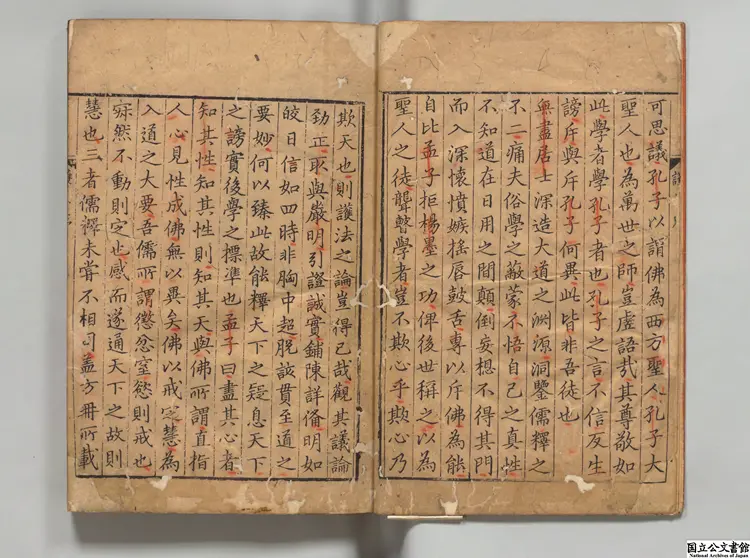 可思議孔子以謂佛為西方聖人孔子大
聖人也為萬世之師豈虛語哉其尊敬如
此學者學孔子者也孔子之言不信反生
謗斥與斥孔子何異此皆非吾徒也
無盡居士深造大道之淵源洞鑒儒釋之
不二痛夫俗學之蔽蒙不悟自己之真性
不知道在日用之間顛倒妄想不得其門
而入深懷憤嫉搖唇鼓舌專以斥佛為能
自比孟子拒楊墨之功俾後世稱之以為
聖人之徒聾瞽學者豈不欺心乎欺心乃
欺天也則護法之論豈得已哉觀其議論
勁正取與嚴明引證誠實鋪陳詳備明如
皎日信如四時非胸中超脫該貫至道之
要妙何以臻此故能釋天下之疑息天下
之謗實後學之標準也孟子曰盡其心者
知其性知其性則知其天與佛所謂直指
人心見性成佛無以異矣佛以戒定慧為
入道之大要吾儒所謂懲忿窒慾則戒也
寂然不動則定也感而遂通天下之故則
慧也三者儒釋未嘗不相同盖方冊所載
国立公文書館
National Archives of Japan